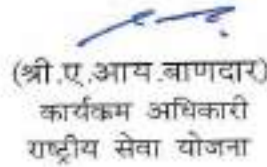 (श्री.ए.आय.बाणदार)
कार्यक्रम अधिकारी
राष्ट्रीय सेवा योजना